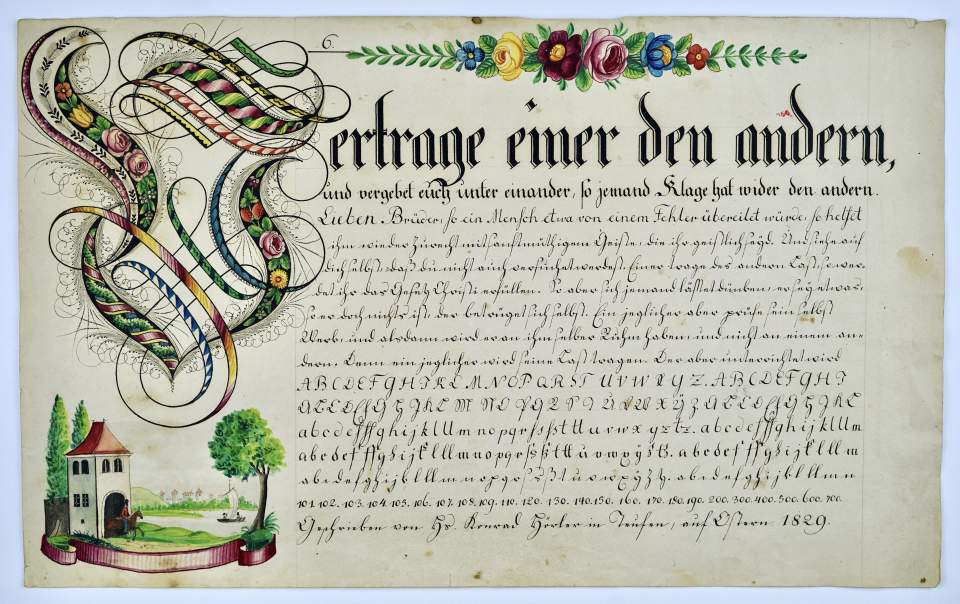 6.
Vertrage einer den andern,
und vergebet euch unter einander, so jemand Klage hat wider den andern.
Lieben Brüder, so ein Mensch etwa von einem Fehler übereilet würde, so helfet
ihm wieder zurecht mit sanftmüthigem Geiste, die ihr geistlich seyd. Und siehe auf
dich selbst, daß du nicht auch versuchet werdest. Einer trage des andern Last, so wer-
det ihr das Gesetz Christi erfüllen. So aber sich jemand lässet dünken, er sey etwas,
so er doch nichts ist, der betrüget sich selbst. Ein jeglicher aber prüfe sein selbst
Werk; und alsdann wird er an ihm selber Ruhm haben, und nicht an einem an-
dern. Denn ein jeglicher wird seine Last tragen. Der aber unterrichtet wird
A B C D E F G H I K L M N O P Q R S T U V W X Y Z. A B C D E F G H I
A B C D E F G H I K L M N O P Q R S T U V W X Y Z A B C D E F G H I K L
a b c d e f ff g h i j k l ll m n o p q r s ſ ß t tt u v w x y z tz. a b c d e f ff g h i j k l ll m
a b c d e f ff g h i j k l ll m n o p q r s ſ ß t tt u v w x y z tz. a b c d e f ff g h i j k l ll m
a b c d e f g h i j k l ll m n o p q r s ſ ß t u v w x y z tz. a b c d e f g h i j k l ll m n
101. 102. 103. 104. 105. 106. 107. 108. 109. 110. 120. 130. 140. 150. 160. 170. 180. 190. 200. 300. 400. 500. 600. 700.
Geschrieben von Hs. Konrad Hörler in Teufen, auf Ostern 1829.